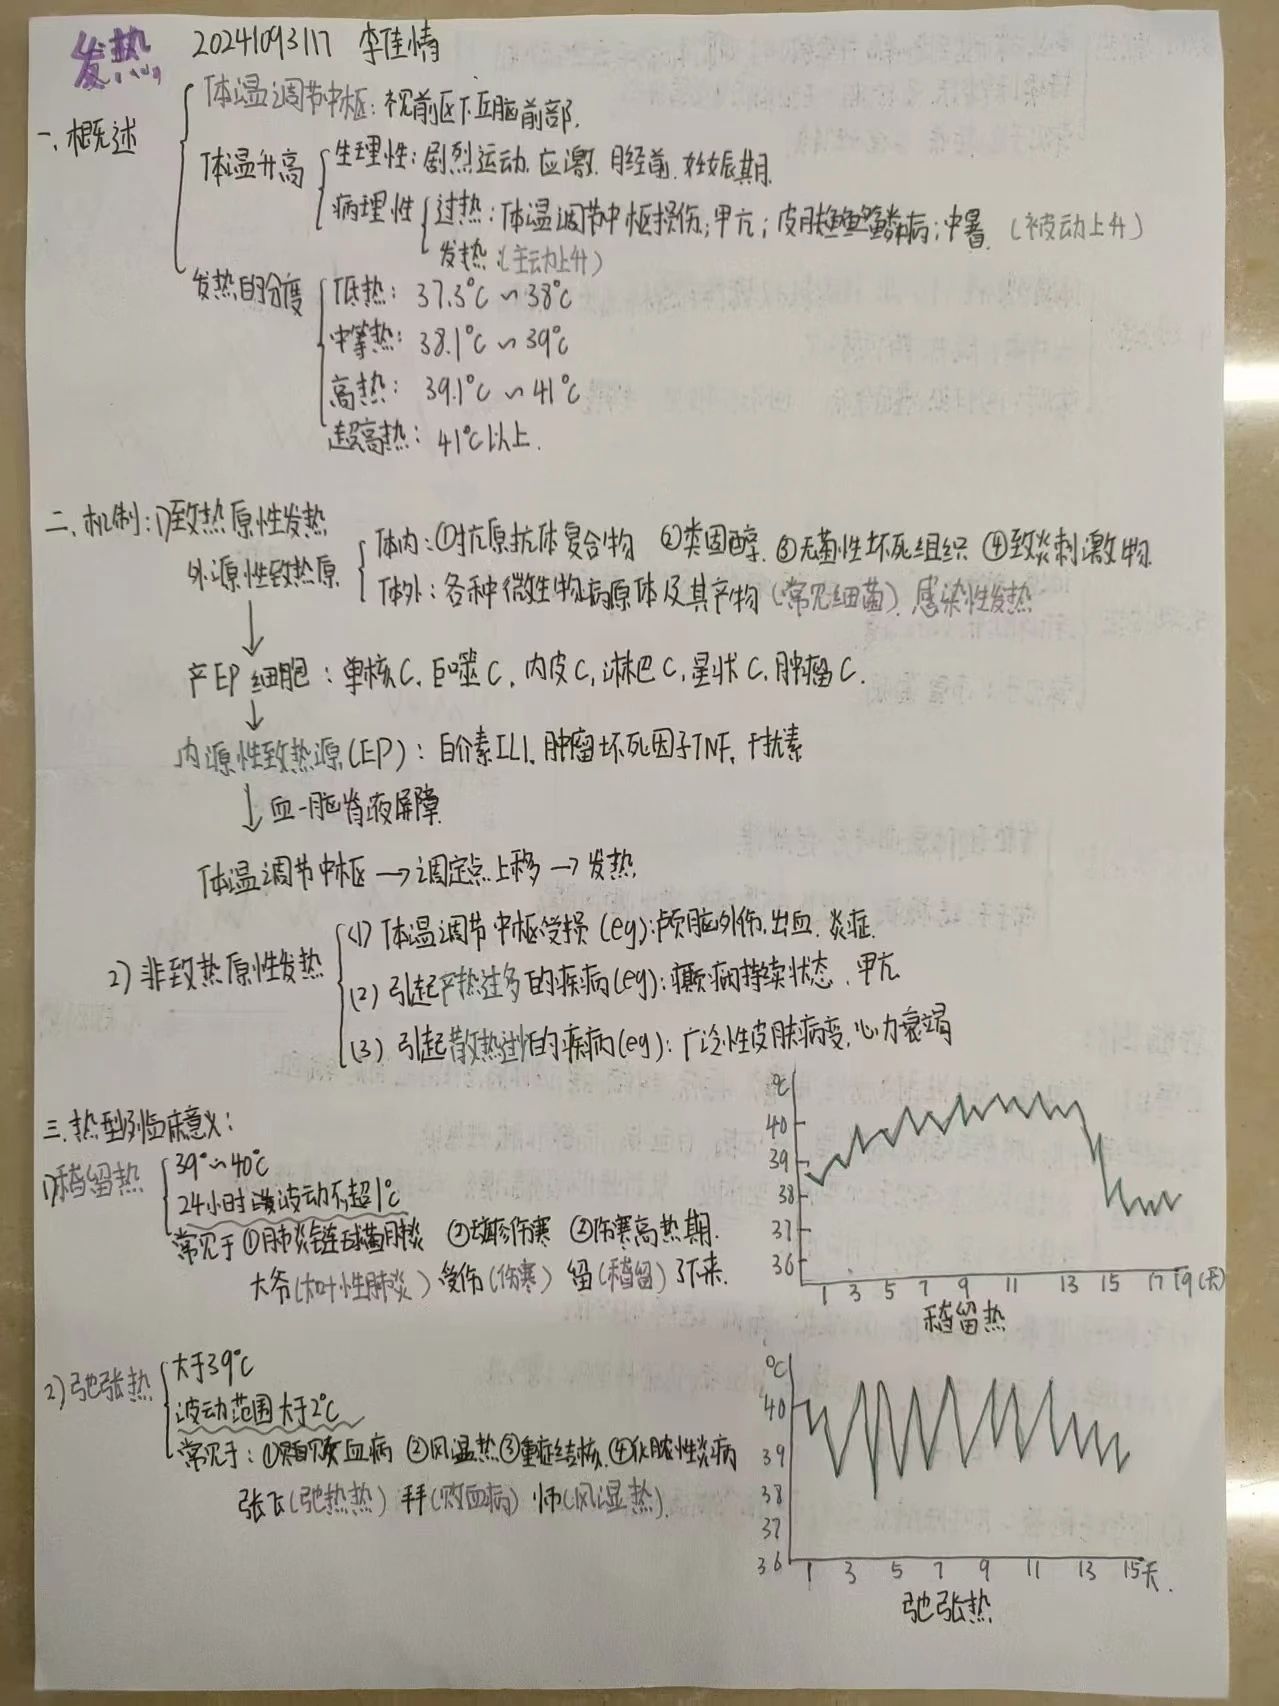 发热 20241093117 李佳情
一、概述
体温调节中枢:视前区下丘脑前部.
体温升高
生理性:剧烈运动.应激.月经前.妊娠期.
病理性
过热:体温调节中枢损伤;甲亢;皮肤鱼鳞病;中暑.(被动上升)
发热:(主动上升)
发热的分度
低热: 37.3℃~38℃
中等热: 38.1℃~39℃
高热: 39.1℃~41℃
超高热: 41℃以上.
二、机制:1)致热原性发热
外源性致热原
体内:①抗原抗体复合物 ②类固醇.③无菌性坏死组织 ④致炎刺激物
体外:各种微生物病原体及其产物(常见细菌).感染性发热
↓
产EP细胞:单核C.巨噬C.内皮C,淋巴C,星状C.肿瘤C.
↓
内源性致热源(EP):白介素IL1.肿瘤坏死因子TNF,干扰素
↓血-脑脊液屏障
体温调节中枢→调定点上移→发热
2)非致热原性发热
(1)体温调节中枢受损(eg):颅脑外伤.出血.炎症.
(2)引起产热过多的疾病(eg):癫痫持续状态.甲亢
(3)引起散热过的疾病(eg):广泛性皮肤病变,心力衰竭
三.热型临床意义:
1)稽留热
39°~40℃
24小时波动不超1℃
常见于①肺炎链球菌肺炎 ②斑疹伤寒 ③伤寒高热期.
大爷(大叶性肺炎)受伤(伤寒)留(稽留)下来.
℃
40
39
38
37
36
1 3 5 7 9 11 13 15 17 19(天)
稽留热
2)弛张热
大于39℃
波动范围大于2℃
常见于:①败血病 ②风湿热③重症结核.④化脓性炎病
张飞(弛热热)拜(败血病)师(风湿热).
℃
40
39
38
37
36
1 3 5 7 9 11 13 15天.
弛张热